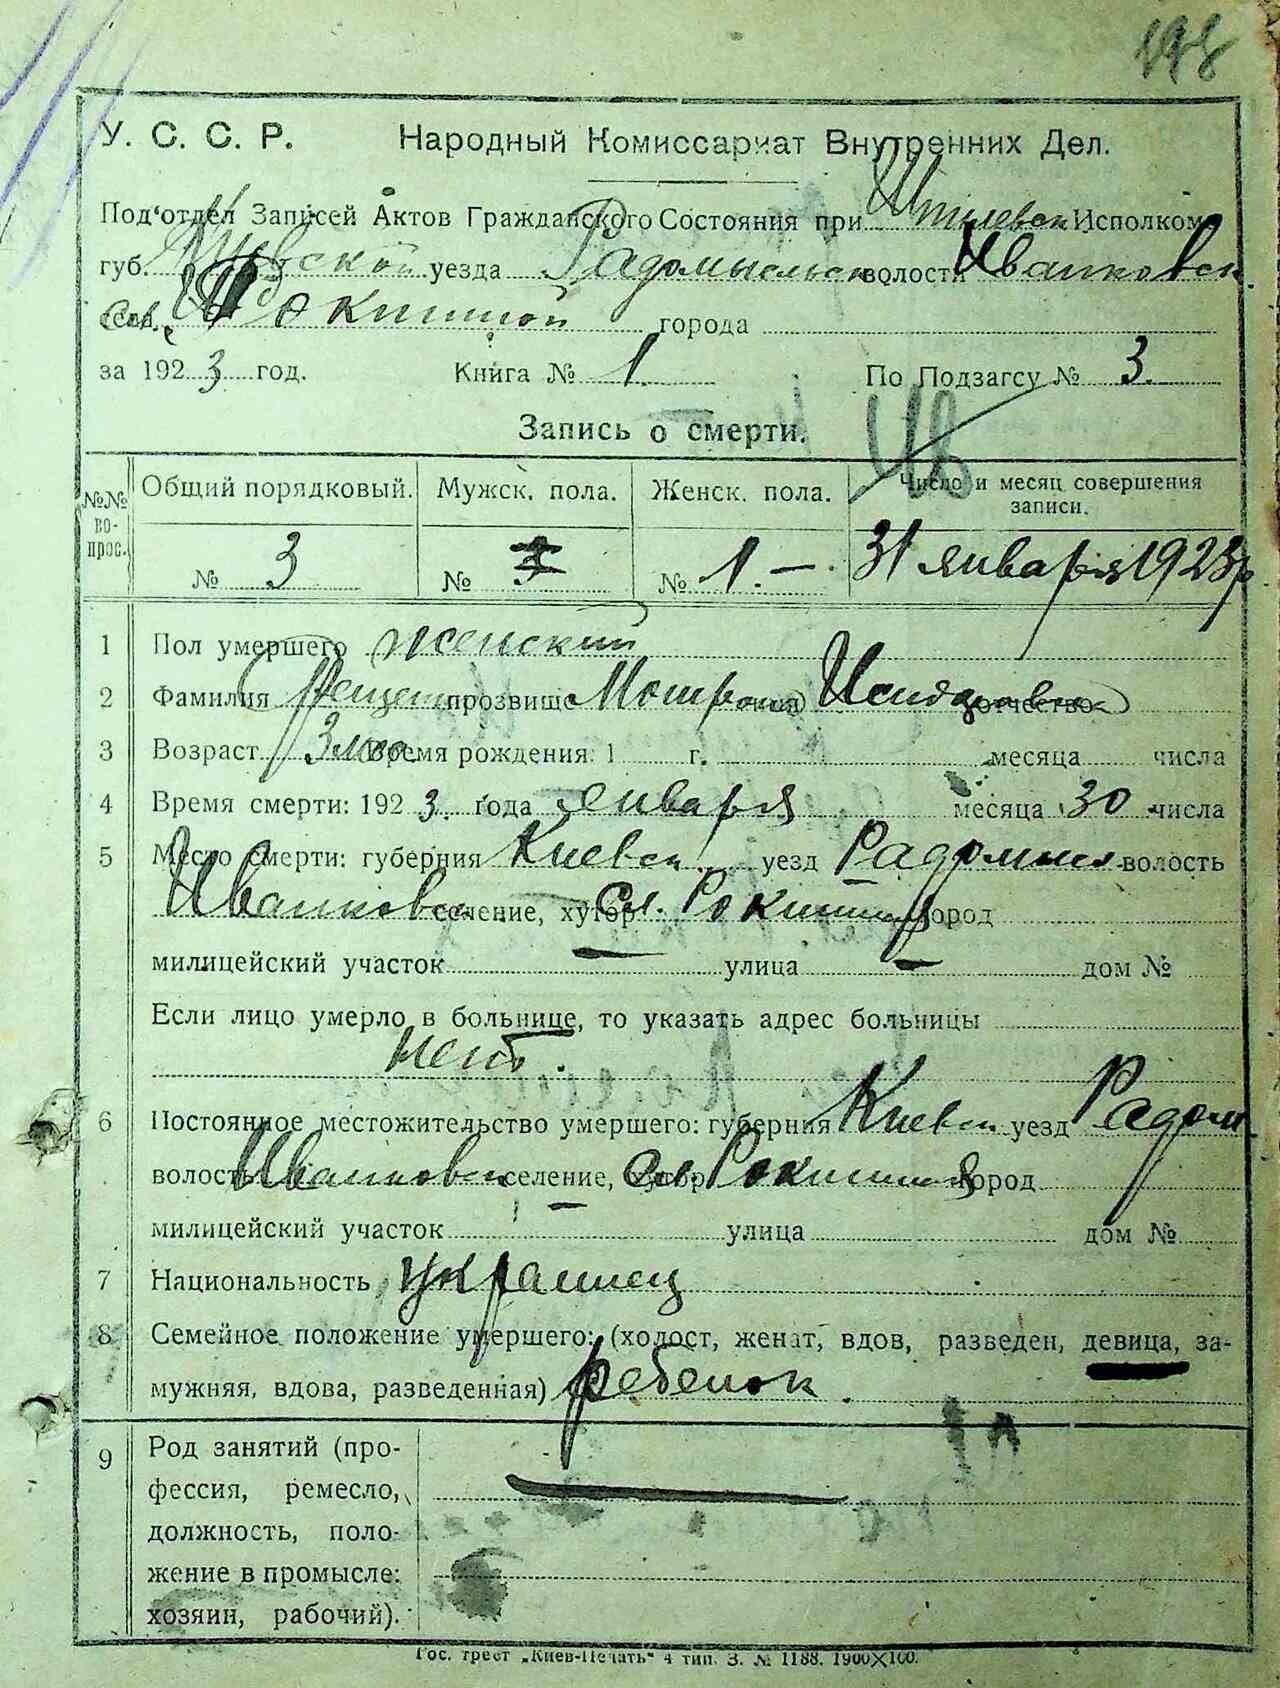 198
У. С. С. Р. Народный Комиссариат Внутренних Дел.
Под'отдел Записей Актов Гражданского Состояния при Исполком
губ. Киевской уезда Радомысльск волости Иванковск
города
за 1923 год. Книга № 1. По Подзагсу № 3.
Запись о смерти.
№№ вопрос. Общий порядковый. Мужск. пола. Женск. пола. Число и месяц совершения записи.
№ 3 № № 1. — 31 января 1923 р
1 Пол умершего женский
2 Фамилия прозвище отчество
3 Возраст 3 Время рождения: 1 г. месяца числа
4 Время смерти: 1923. года января месяца 30 числа
5 Место смерти: губерния Киевск уезд Радомысл волость
Иванковск селение, хутор Сл. город
милицейский участок — улица — дом №
Если лицо умерло в больнице, то указать адрес больницы
нет.
6 Постоянное местожительство умершего: губерния Киевск уезд Радом
волость Иванковск селение, хутор Сл. город
милицейский участок — улица дом №
7 Национальность украинец
8 Семейное положение умершего: (холост, женат, вдов, разведен, девица, за-
мужняя, вдова, разведенная) ребенок.
9 Род занятий (про-
фессия, ремесло, —
должность, поло-
жение в промысле:
хозяин, рабочий).
Гос. трест „Киев-Печать“ 4 тип. З. № 1188. 1900×100.